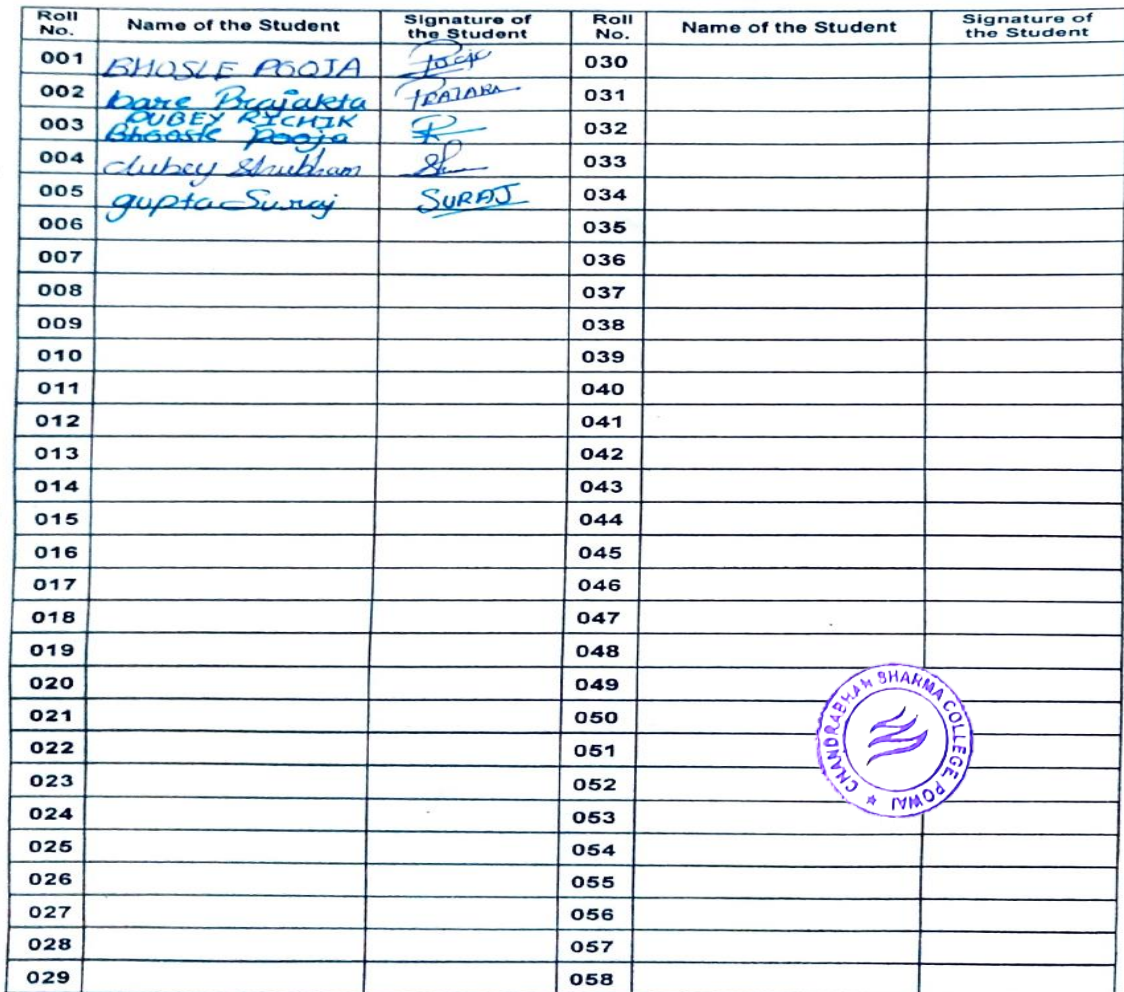 Roll No. Name of the Student Signature of the Student Roll No. Name of the Student Signature of the Student
001 BHOSLE POOJA Pooja 030
002 bare Prajakta 031
DUBEY RICHIK
003 Bhoosle Pooja 032
004 dubey Shubham 033
005 gupta Suraj SURAJ 034
006 035
007 036
008 037
009 038
010 039
011 040
012 041
013 042
014 043
015 044
016 045
017 046
018 047
019 048
020 049
021 050
022 051
023 052
024 053
025 054
026 055
027 056
028 057
029 058
CHANDRABHAN SHARMA COLLEGE POWAI